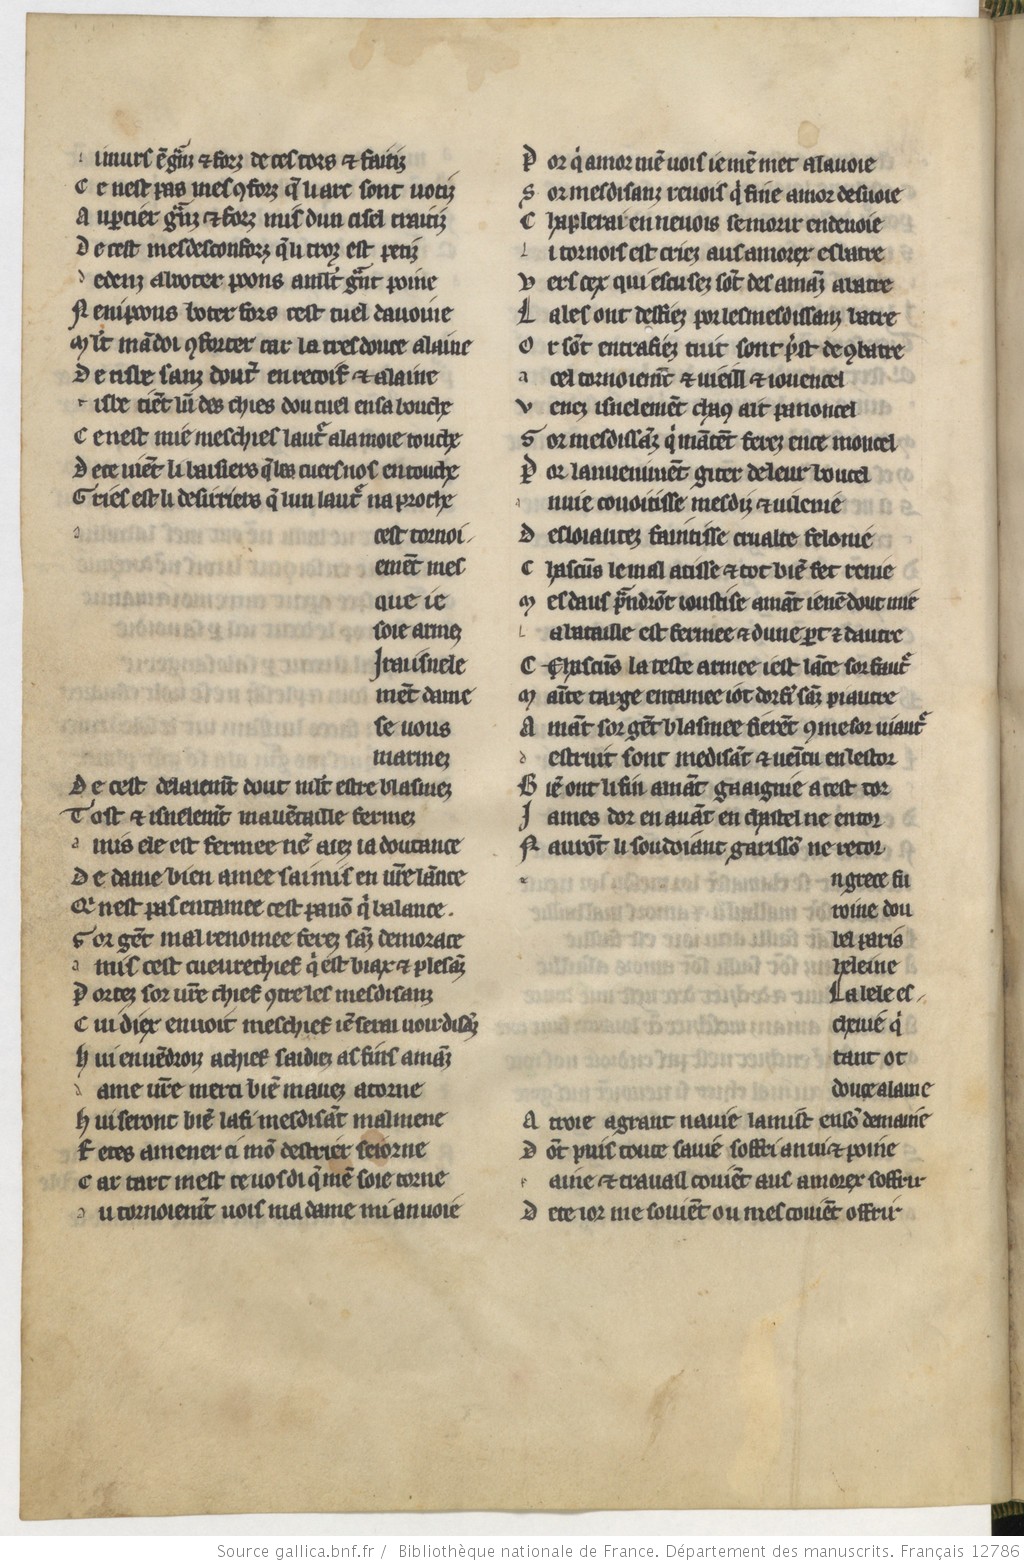 l i murs ẽ gñz & forz de ces tors & faitiz
C e nest pas mes ꝯforz q̃ li arc sont uotiz
A u ꝑcier gñz & forz mis dun cisel traitiz
D e cest mesdesconforz q̃ li troz est petiz
d edenz a boter poons
N en ipoons boter fors cest cuel dauoine
M lt̃ mã doi ꝯforter car la tres douce alaine
D e tisbe sanz dout̃ en recoif & alaine
t isbe tiẽt lũ des chies dou tuel en sa bouche
C e nest mie meschies laut̃ a la moie touche
D e ce uiẽt li baisiers q̃ les cuers nos en touche
G ries est li desirriers q̃ lun laut̃ na proche
a cest tornoi-
emẽt mes
que ie
soie armez
Irai isnele
mẽt dame
se uous
marmez
D e cest delaiemt̃ dout mlt̃ estre blasmez
T ost & isnelemt̃ ma uẽtaille fermez
a mis ele est fermee nẽ aiez ia doutance
D e dame bien amee sai mis en ur̃e lãnce
Q̃ nest pas entamee cest panõ q̃ balance.
S or gẽt mal renomee ferez sãz demorace
a mis cest cueurechief q̃ est biax & plesãz
P ortez sor ur̃e chief ꝯtre les mesdisanz
C ui diex enuoit meschief iẽ serai uoir disãz
h ui en uẽdroiz a chief saidiez as fins amãz
d ame ur̃e merci biẽ mauez atorne
h ui seront biẽ lasi mesdisãt malmene
F etes amener ci mõ destrier seiorne
C ar tart mest ce uos di q̃ mẽ soie torne
a u tornoiemt̃ uois ma dame mi anuoie
P or q̃ amor mẽ uois ie mẽ met a la uoie
S or mesdisanz reuois q̃ fine amor desuoie
C haplerai en neuois se morir en deuoie
l i tornois est criez aus amorex esbatre
V ers cex qui escusez sõt des amãz abatre
L ales ont desfiez por les mesdissanz batre
O r sõt entrafiez tuit sont p̃st de ꝯbatre
a cel tornoiemt̃ & uieill & iouencel
V enez isnelemẽt chaꝯ ait panoncel
S or mesdissãz q̃ mãtẽt ferez en ce moncel
P or lanuenimẽt giter de leur boucel
a nuie couoitisse mesdiz & uilenie
D esloiautez faintisse crualte felonie
C hascũs le mal atisse & tot biẽ fet renie
M es daus p̃ndrõt ioustise amãt ie nẽ dout mie
l a bataille est fermee & dune ꝑt & dautre
C Chascũs la teste armee iest lãce sor faut̃
M ainte targe entamee
A mãt sor gẽt blasmee fierẽt
d estruit sont medisãt & uẽicu en lestor
B iẽ ont li fin amãt gaaignie a cest tor
I ames dor en auãt en chastel ne en tor
N aurõt li soudoiãnt garissõ ne retor
n grece fu
roine dou
bel paris
heleine
La bele es-
chiue q̃
tant ot
douce alaine
A troie a grant nauie la mist en sõ demaine
D õt puis toute sa uie soffri anui & poine
p aine & trauail couiẽt aus amorex soffrir
D ece ior me souiẽt ou mes couiẽt offrir